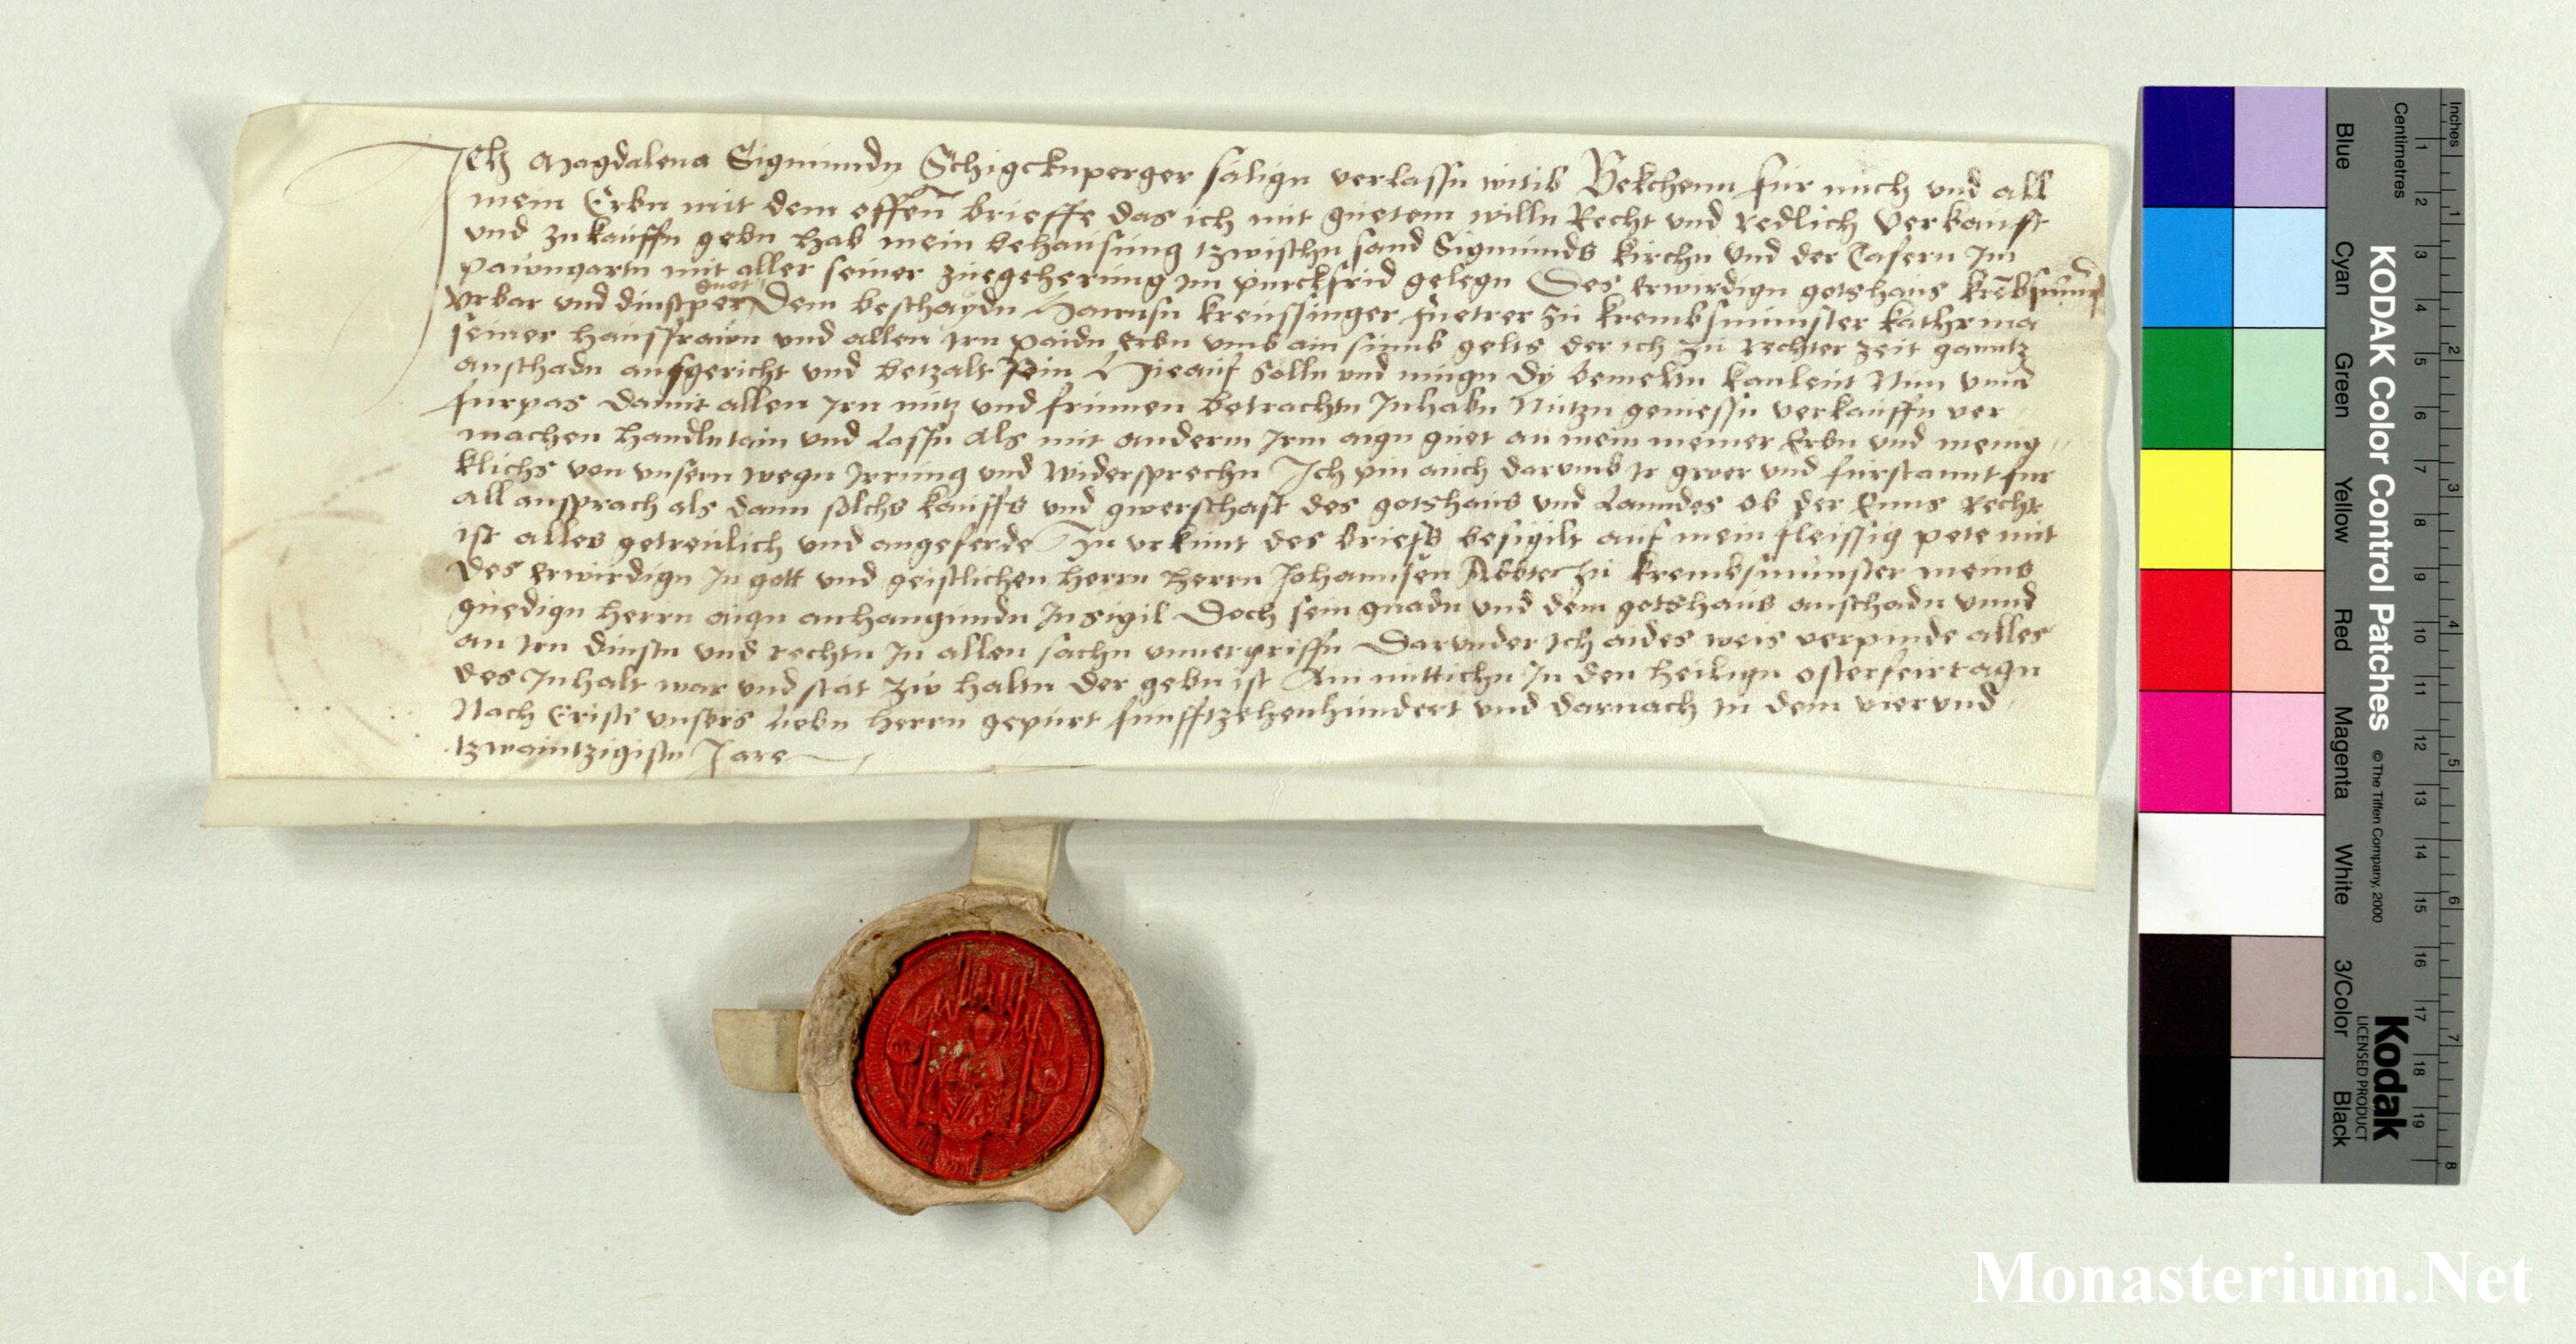 Ich Magdalena Sigmundn Schigcknperger sälign verlassn witib Bekchenn für mich und all
mein Erbn mit dem offenn brieffe das ich mit guetem willn Recht und redlich verkaufft
und zukauffn gebn hab mein behausung tzwischn sand Sigmunds kirchn und der Tafern Im
pawngartn mit aller seiner zuegeherung im purckfrid gelegn Des erwirdign gotshaus krembsmunst
guet
Urbar und dinstper Dem beschaydn Hannsn kreussinger zu krembsmunster kathrina
seiner hausfrawn und allen irn paidn Erbn umb ain sumb gelts der ich zu rechter zeit ganntz
anschadn ausgericht und betzalt pin Hieauf solln und mugn dy bemeltn kauleut Nun unnd
furpas damit allen Irn nutz und frumen betrachtn Inhabn Nutzn geniessn verkauffn ver
machen handln tain und Lassn als mit anderm Irm aign guet an mein meiner Erbn und menig
klichs von unsern wegn Irrung und widersprechn Ich pin auch darumb ir gwer und furstannt fur
all ansprach als dann solchs kauffs und gwerschaft des gotshaus und Lanndes ob der Enns Recht
ist alles getreulich und angeferde In urkunt des briefs besigilt auf mein fleissig pete mit
des erwirdign In gott und geistlichen herrn herrn Johannsen Abbte zu krembsmunster meins
gnedign herrn aign anhangundn Insigil Doch sein gnadn und dem gotshaus anschadn unnd
an irn dinstn und rechtn In allen sachn unnergriffn Darunder ich aides weis verpinde alles
des Inhalt war und stat zw haltn der gebn ist Am mittichn In den heilign osterfeirtagn
Nach Cristi unsers liebn herrn gepurt funfftzehenhundert und darnach in dem vierund
tzwaintzigistn Jare
KODAK Color Control Patches © The Tiffen Company, 2000 Kodak
LICENSED PRODUCT
Blue Cyan Green Yellow Red Magenta White 3/Color Black
Centimetres 1 2 3 4 5 6 7 8 9 10 11 12 13 14 15 16 17 18 19
Inches 1 2 3 4 5 6 7 8
Monasterium.Net